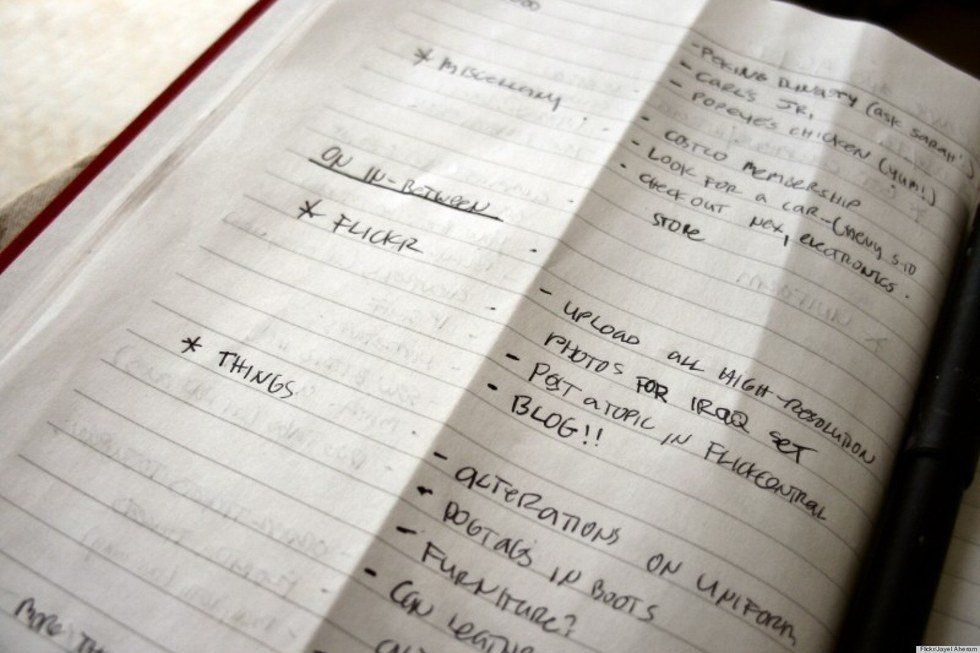 * MISCELLANY
- PEKING DYNASTY (ask SARAH)
- CARL'S JR,
- POPEYE'S CHICKEN (YUM!)
- COSTCO MEMBERSHIP
- LOOK FOR A CAR-CHEVY S-10
- CHECK OUT NEX, ELECTRONICS
STORE
ON IN-BETWEEN
* FLICKR
- UPLOAD ALL HIGH-RESOLUTION
PHOTOS FOR IRAQ SET
- POST A TOPIC IN FLICKCENTRAL
- BLOG!!
* THINGS
- ALTERATIONS ON UNIFORM
- DOGTAGS IN BOOTS
- FURNITURE?
- CAN
MORE
Flickr/Jayel Aheram